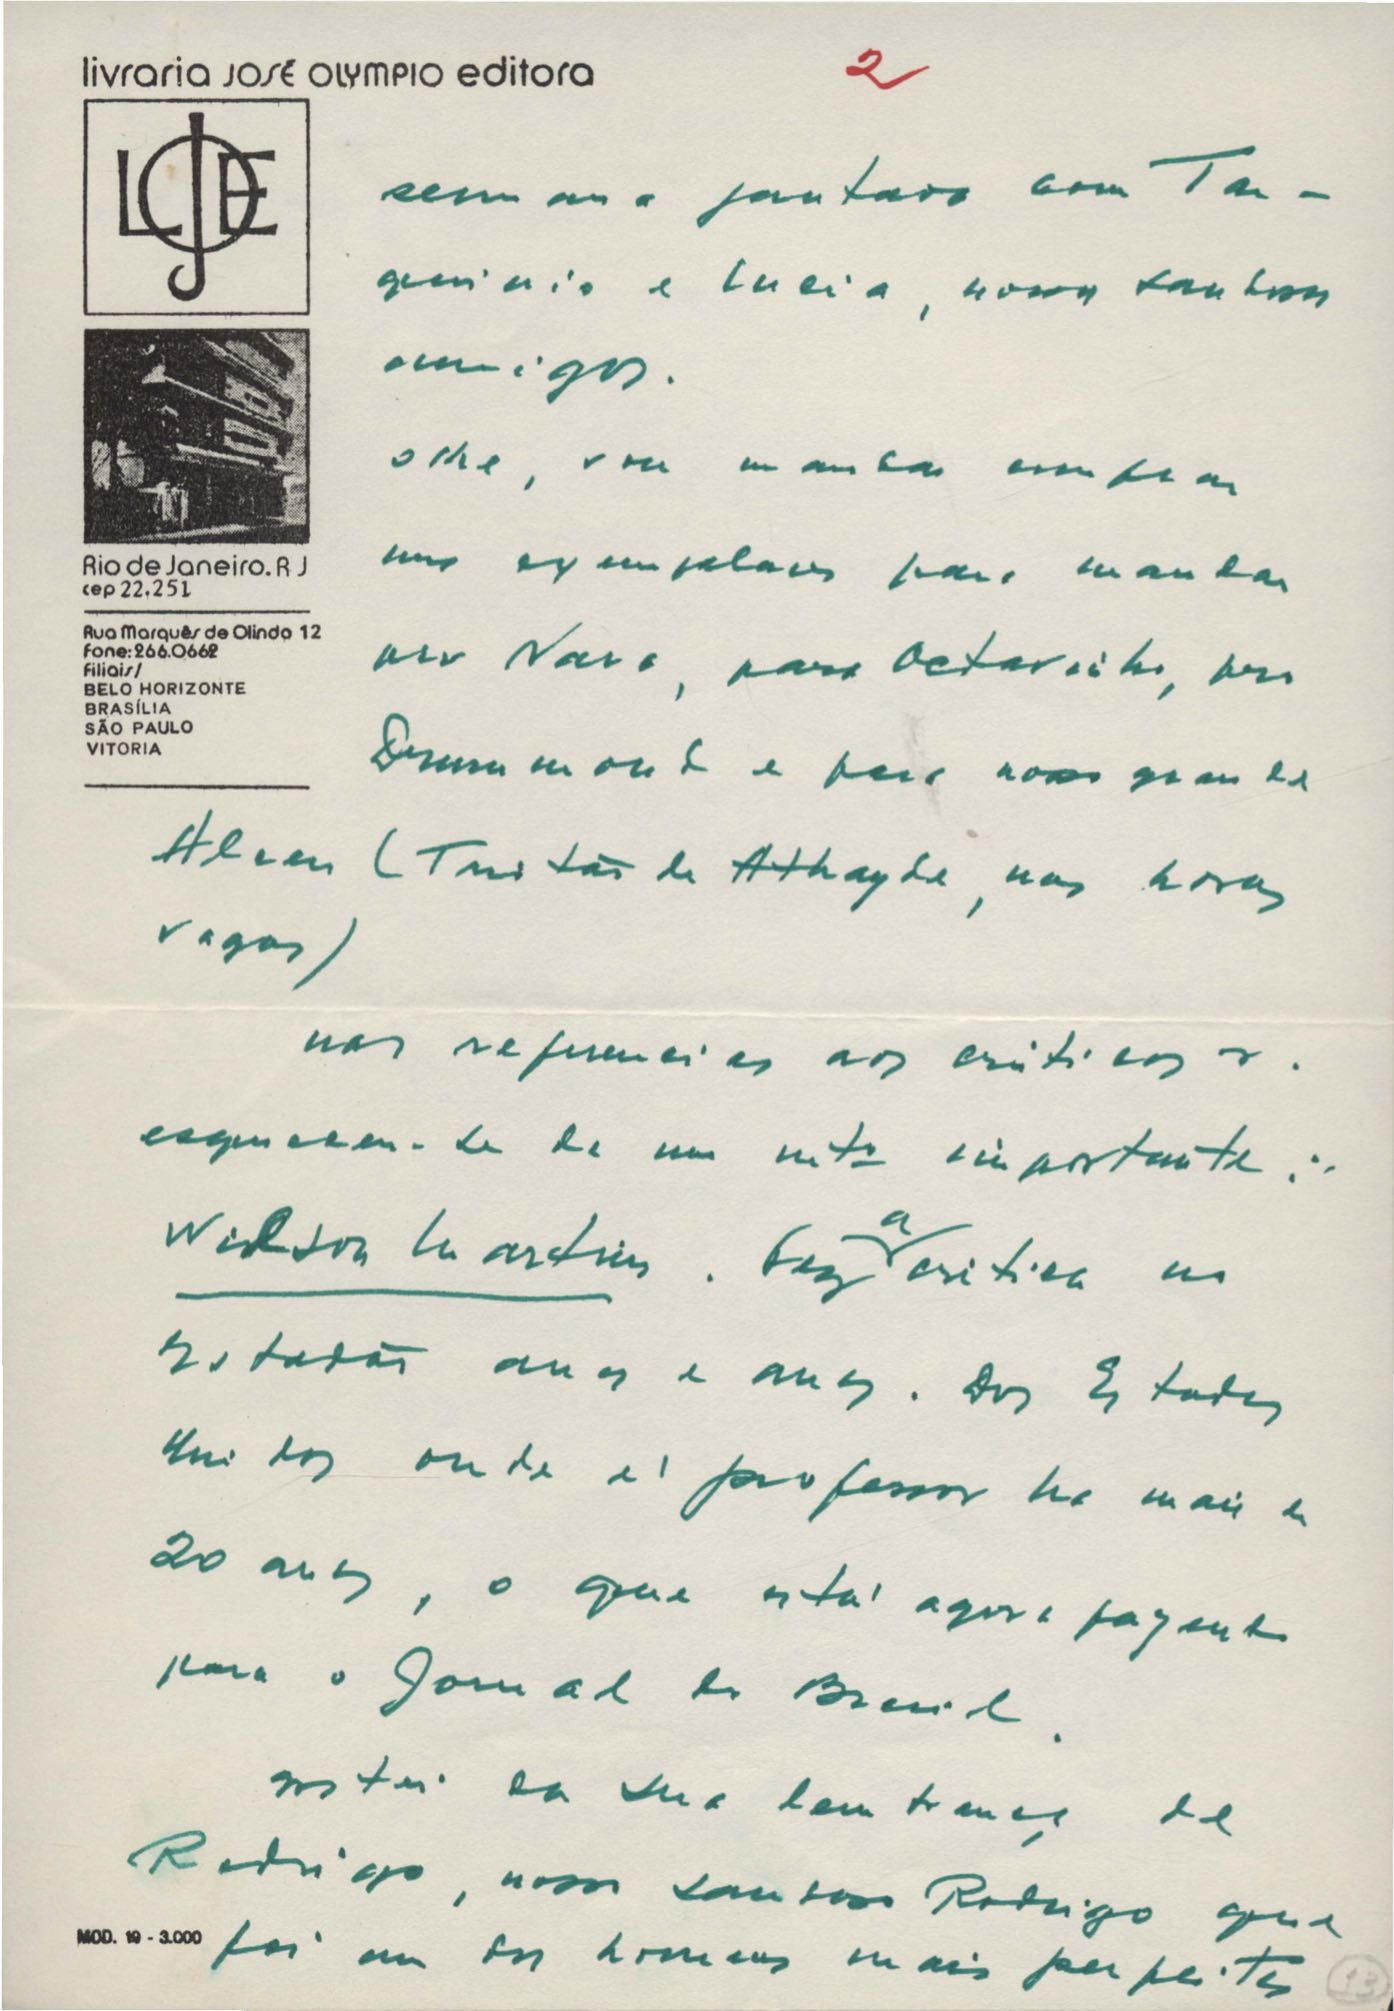 livraria JOSÉ OLYMPIO editora
2
LJOE
Rio de Janeiro. RJ
cep 22.251
Rua Marquês de Olinda 12
Fone: 266.0662
Filiais/
BELO HORIZONTE
BRASÍLIA
SÃO PAULO
VITORIA
semana jantava com Tar-
quinio e Lucia, nossos santos
amigos.
olhe, vou mandar comprar
uns exemplares para mandar
pro Nava, para Octavinho, pro
Drummond e para nosso grande
Alceu (Tristão de Athayde, nas horas
vagas)
nas referencias aos criticos v.
esqueceu-se de um mto importante:
Wilson Martins. Fez a critica no
Estadão anos e anos. Dos Estados
Unidos onde é professor ha mais de
20 anos, o que está agora fazendo
para o Jornal do Brasil.
gostei da sua lembrança de
Rodrigo, nosso santo Rodrigo que
foi um dos homens mais perfeitos
MOD. 19 - 3.000
13